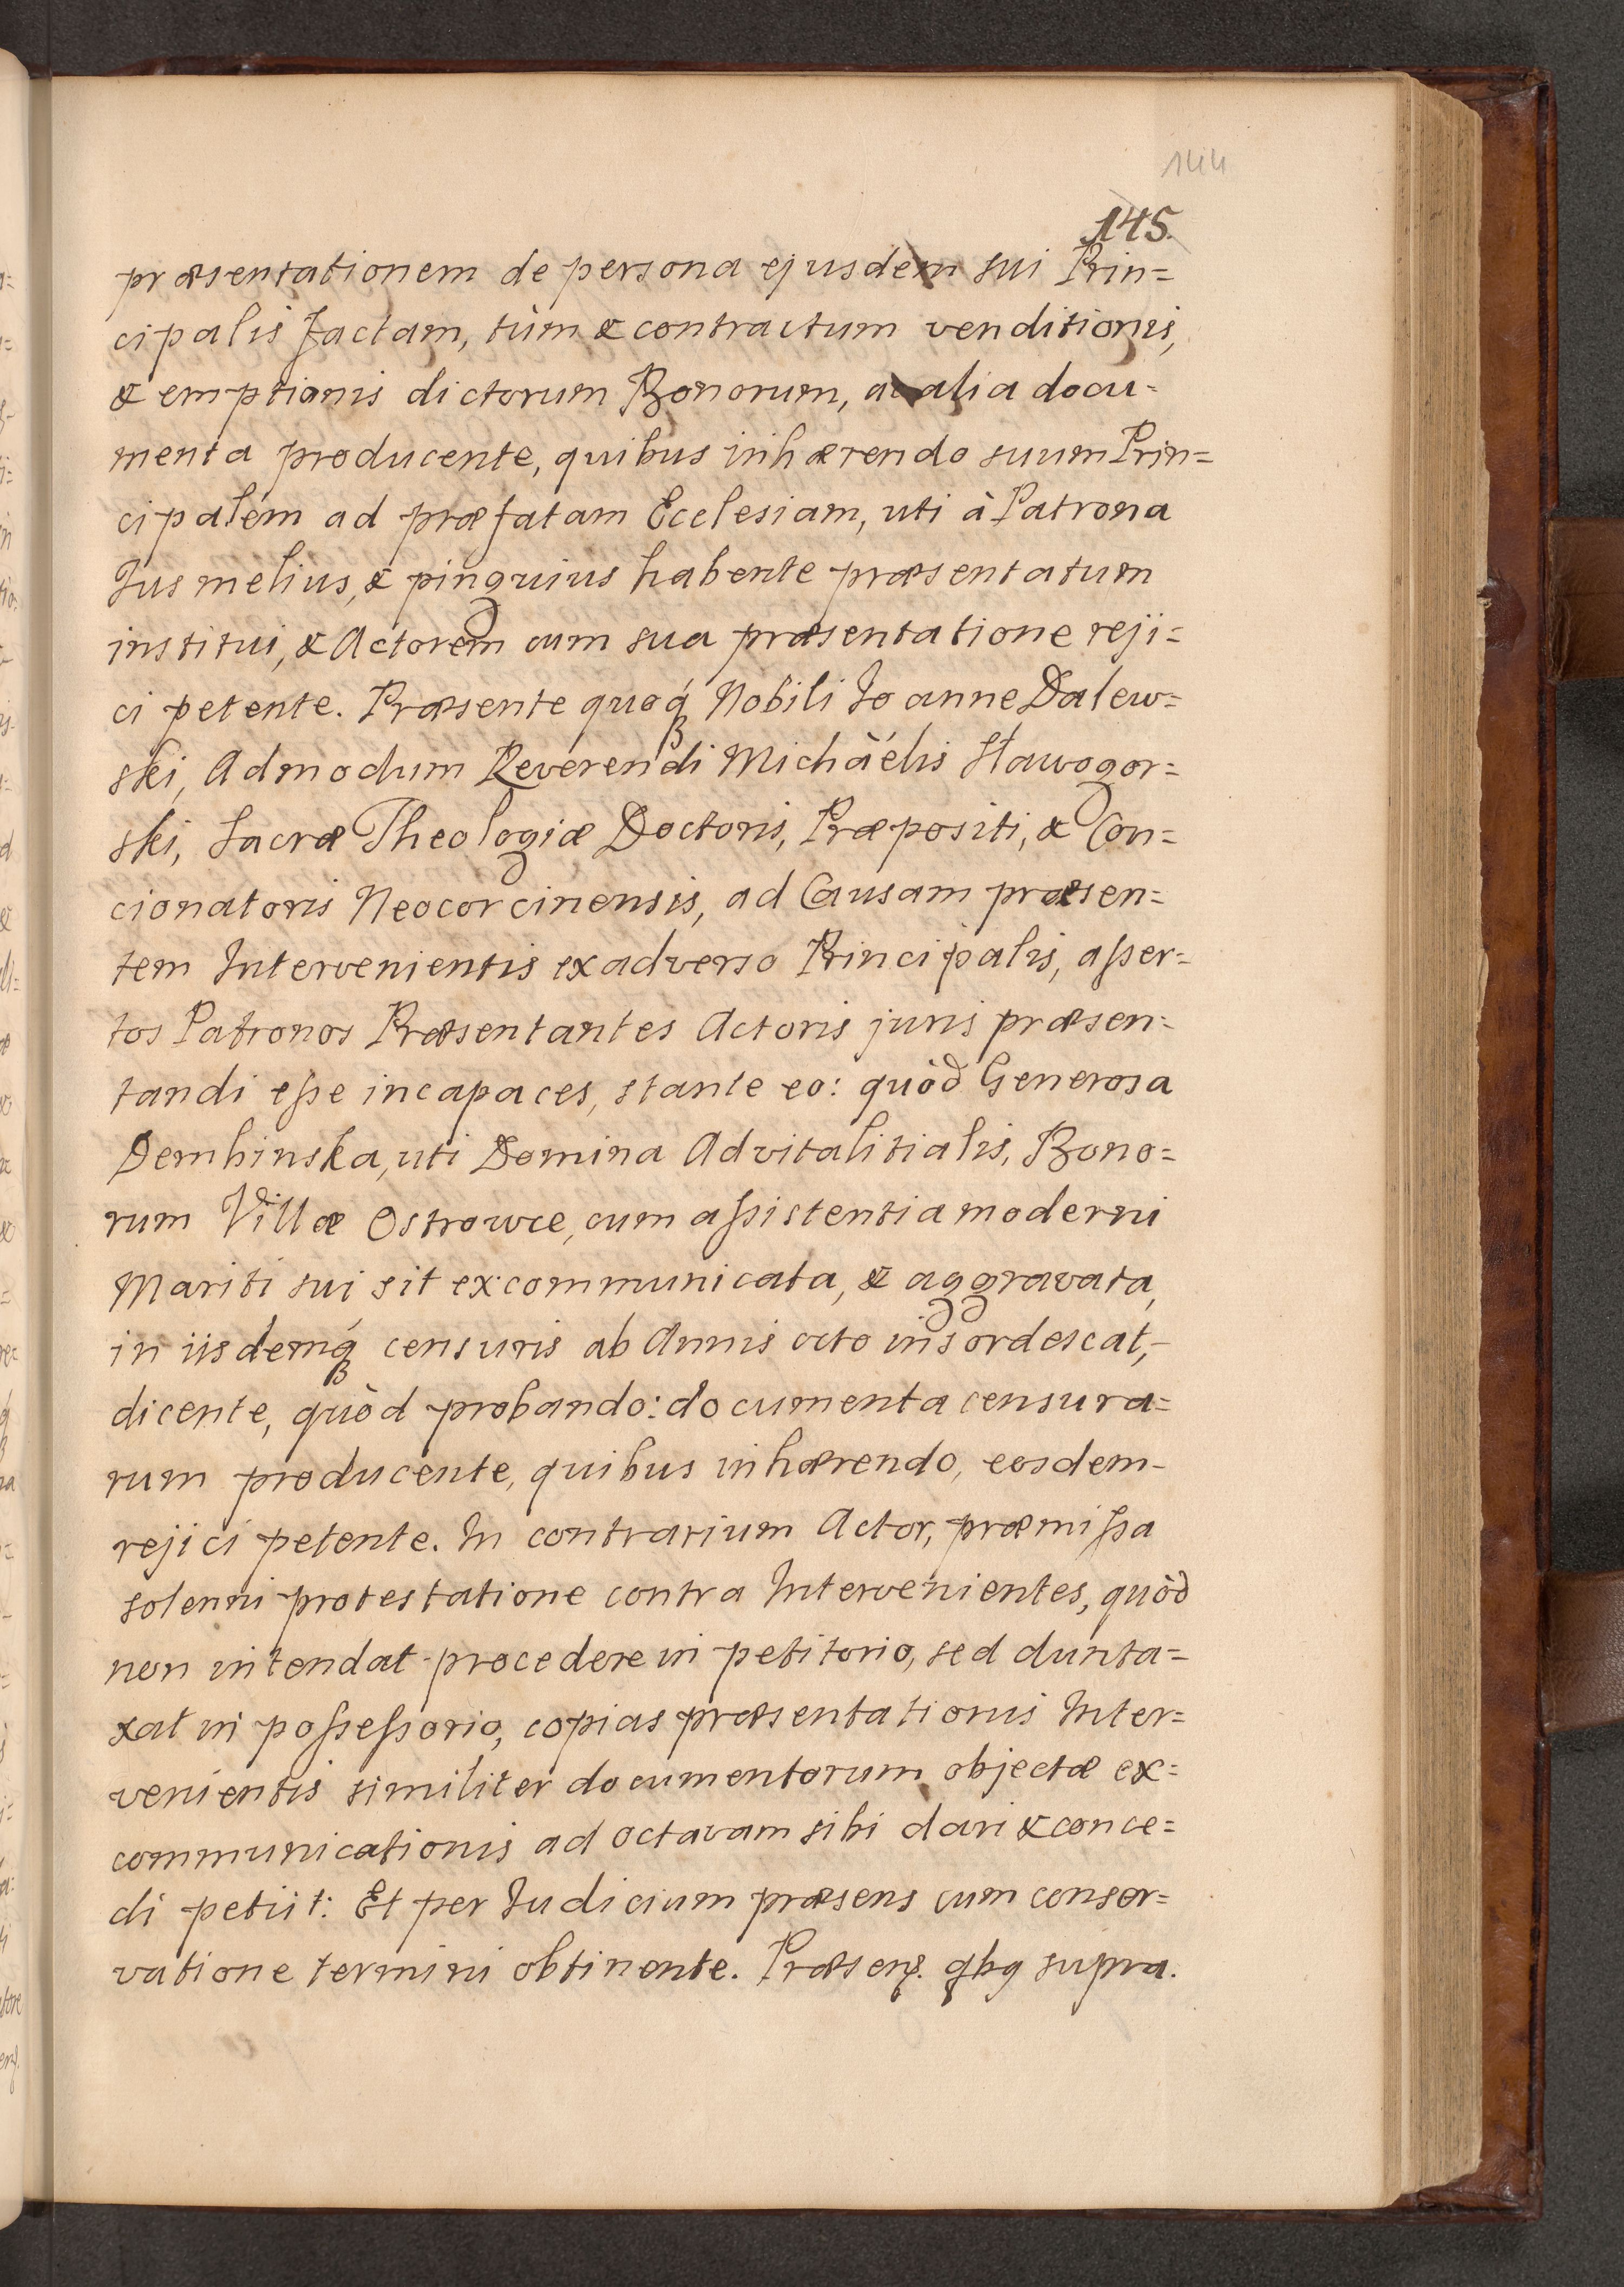 144
145.
præsentationem de persona ejusdem sui Prin=
cipalis factam, tùm & contractum venditionis,
& emptionis dictorum Bonorum, ac alia docu=
menta producente, quibus inhærendo suum Prin=
cipalem ad præfatam Ecclesiam, uti à Patrona
Jus melius, & pinguius habente præsentatum
institui, & Actorem cum sua præsentatione reji=
ci petente. Præsente quoqꝫ Nobili Joanne Dalew=
ski, Admodum Reverendi Michaëlis Stawogor=
ski, Sacræ Theologiæ Doctoris, Præpositi, & Con=
cionatoris Neocorcinensis, ad Causam præsen=
tem Intervenientis ex adverso Principalis, aſser=
tos Patronos Præsentantes Actoris juris præsen=
tandi eſse incapaces, stante eo: quòd Generosa
Dembinska, uti Domina Advitalitialis, Bono=
rum Villæ Ostrowce, cum aſsistentia moderni
Mariti sui sit excommunicata, & aggravata,
in iisdemqꝫ censuris ab Annis octo insordescat,-
dicente, quòd probando: documenta censura=
rum producente, quibus inhærendo, eosdem-
rejici petente. In contrarium Actor, præmiſsa
solenni protestatione contra Intervenientes, quòd
non intendat procedere in petitorio, sed dunta=
xat in poſseſsorio, copias præsentationis Inter=
venientis similiter documentorum objectæ ex=
communicationis ad octavam sibi dari & conce=
di petiit: Et per Judicium præsens cum conser=
vatione termini obtinente. Præsenꝭ. qbꝗ supra.